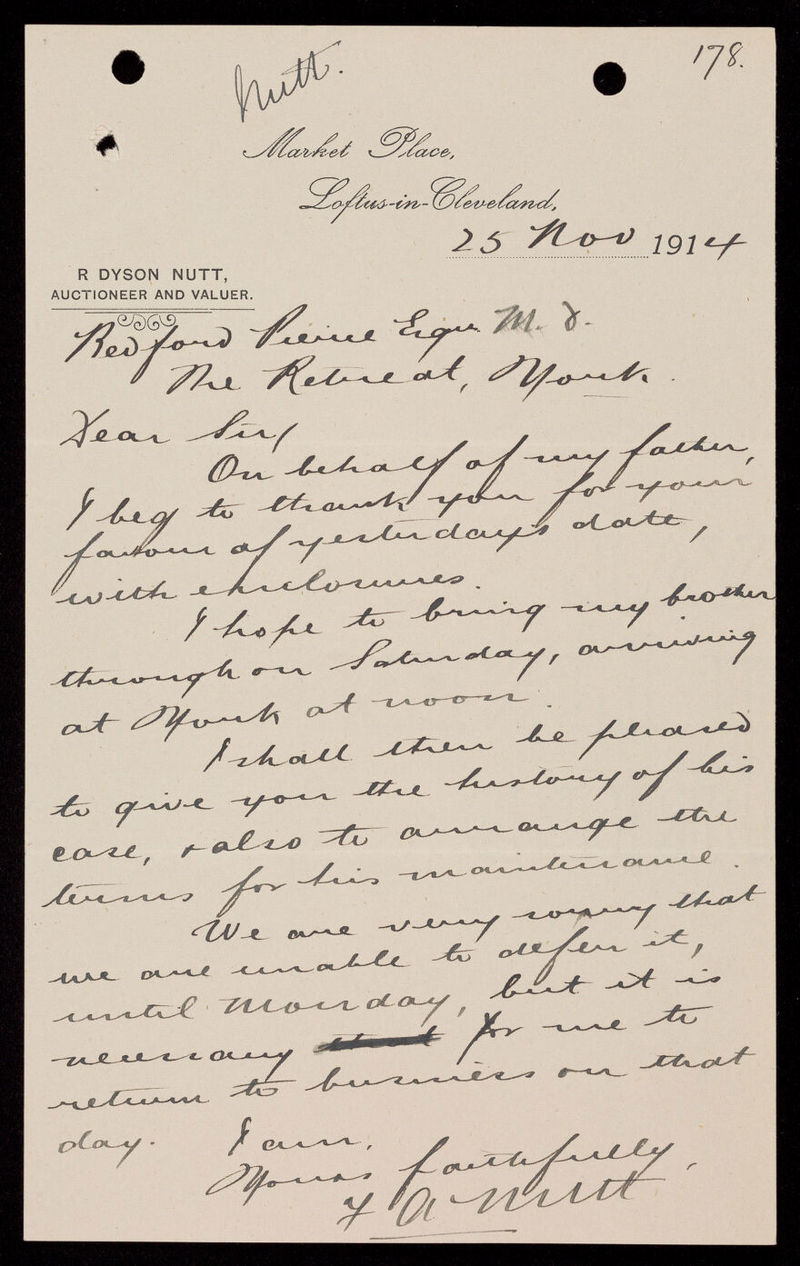 178.
Nutt.
Market Place,
Loftus-in-Cleveland,
25 Nov 1914
R DYSON NUTT,
AUCTIONEER AND VALUER.
Bedford Pierce Esqre M.D.
The Retreat, York.
Dear Sir/
On behalf of my father,
I beg to thank you for your
favour of yesterdays date,
with enclosures.
I hope to bring my brother
through on Saturday, arriving
at York at noon.
I shall then be pleased
to give you the history of his
case, & also to arrange the
terms for his maintenance.
We are very sorry that
we are unable to defer it,
until Monday, but it is
necessary that for me to
return to business on that
day. I am,
Yours faithfully,
F A Nutt